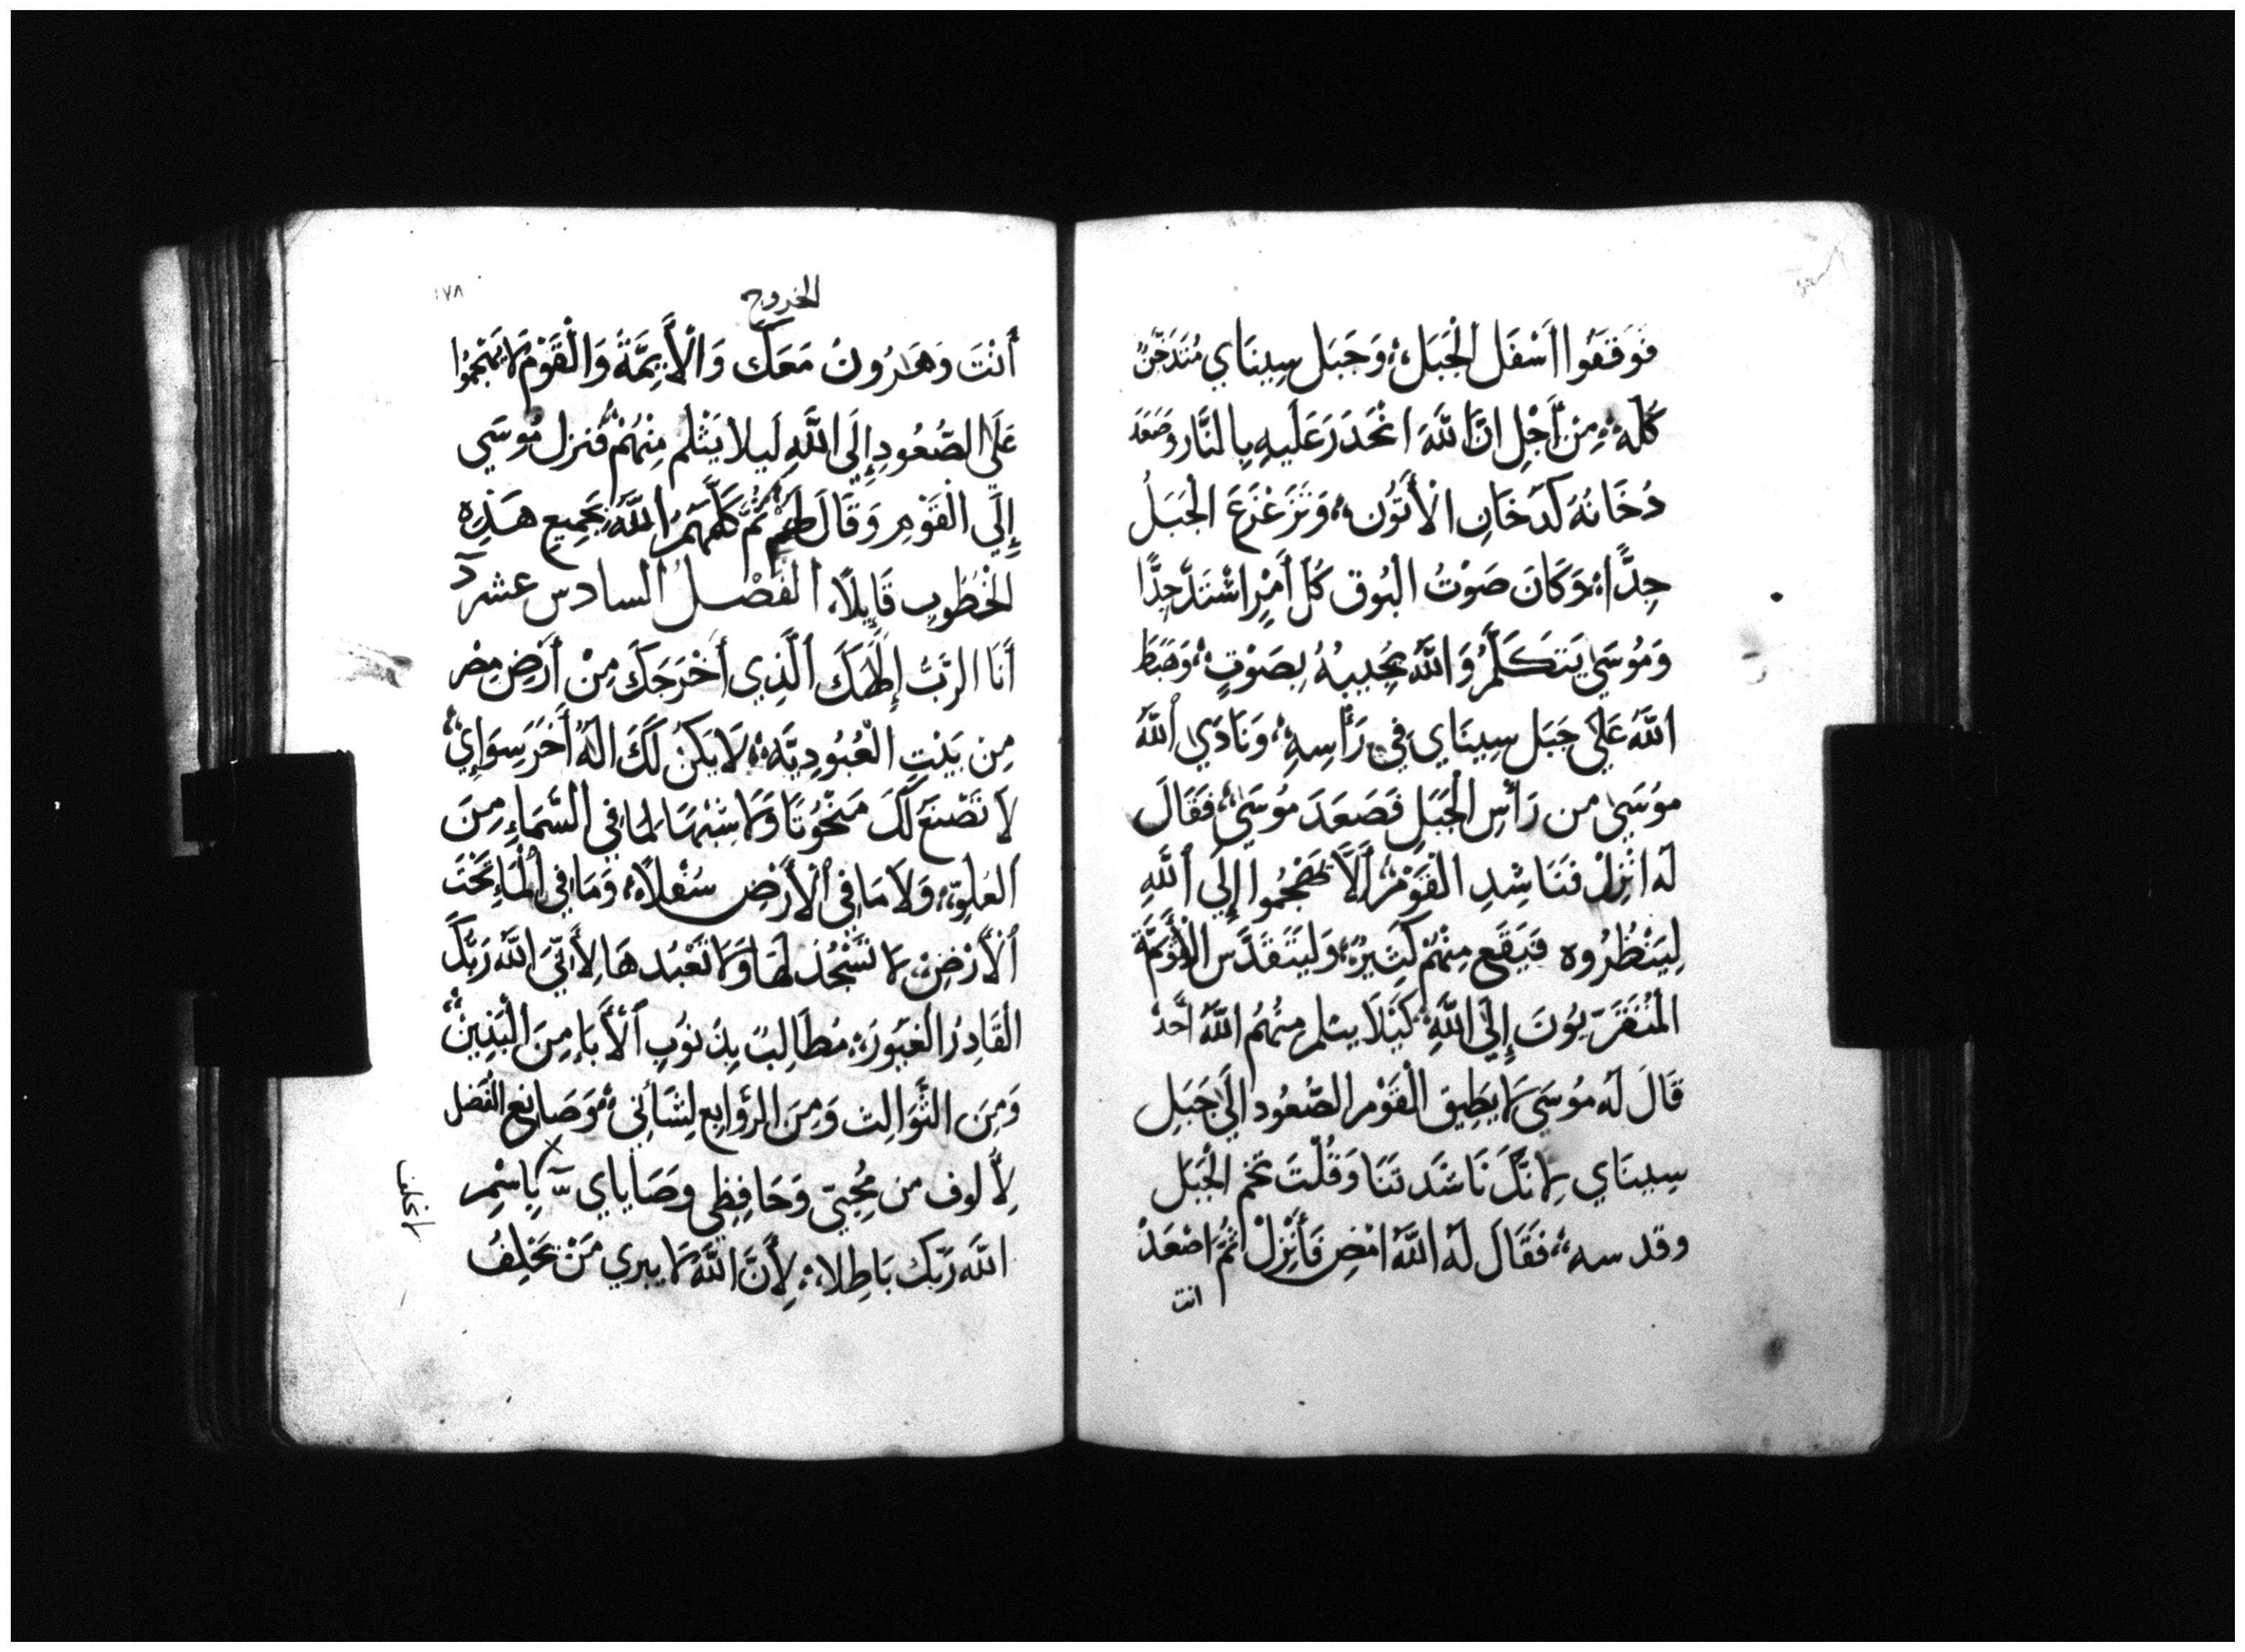 فَوَقَفُوا أَسْفَل الْجَبَل، وَجَبَل سِينَاي مُتَدَخِّنٌ
كُلَّه، مِنْ أَجْلِ انَّ اللَّهَ انْحَدَرَ عَلَيهِ بِالنَّار وصَعَدَ
دُخَانُهُ كَدُخَانِ الأَتُّون، وَتَزَعْزَعَ الجَبَلُ
جِدًّا، وَكَانَ صَوْتُ البُوق كُل أَمْرٍ اشْتَدَّ جِدًّا
وَمُوسَي يَتَكَلَّمُ وَاللَّهُ يُجِيبُهُ بِصَوْتٍ، وَضَبَطَ
اللَّهُ عَلَي جَبَل سِينَاي فِي رَأْسِهِ، وَنَادَي اللَّهُ
مُوسَي من رَأْسِ الْجَبَلِ فَصَعَدَ مُوسَي، فَقَالَ
لَه انْزِلْ فَنَاشِدِ القَوْمَ أَلَّا يَهْجُمُوا إِلَي اللَّهِ
لِيَنْظُرُوه فَيَقَع مِنْهُمْ كَثِيرٌ، وَليَتَقَدَّس الأَئِمَّة
المُتَقَرِّبُونَ إِلَي اللَّهِ، كَيْلَا يثلم مِنْهُمُ اللَّهُ أحَدٌ
قَالَ لَه مُوسَي لَا يطِيق القَوْم الصُّعُود الَي جَبَلِ
سِينَاي لِانَّكَ نَاشَدتَنَا وَقُلْتَ تخم الْجَبَل
وقدسه، فَقَالَ لَه اللَّهُ امْضِ فَأَنْزِلْ ثُمَّ اصْعَدْ
انت
الخروج
١٧٨
أَنْتَ وَهَرُونُ مَعَكَ وَالأَيِمَّةُ وَالْقَوْم لَا يَهْجُمُوا
عَلَي الصُّعُودِ إِلَي اللَّهِ لَيلا يَثْلم مِنْهُمْ فنزل مُوسَي
إِلَي الْقَوْمِ وَقَالَ لَهُمْ ثُمَّ كَلَّمَهُم اللَّهُ بجَمِيع هَذِه
الخُطُوبِ قَايِلًا، الفَصْلُ السادس عشر
أَنَا الرَّبُّ إِلَهَكَ الَّذِي أَخْرَجَكَ مِنْ أَرْضِ مِصْر
مِن بَيْتِ الْعُبُودِيَّه، لَا يَكُنْ لَكَ الَهٌ أَخَر سِوَايْ،
لَا تَصْنَعْ لَكَ مَنْحُوتًا وَلَا شِبْهًا لمَا فِي السَّمَاءِ مِنَ
العُلوّ، وَلَا مَا فِي الأَرْضِ سُفْلًا، وَمَا فِي الْمَاءِ تَحْتَ
الأَرْضِ، لَا تَسْجُد لهَا وَلَا تَعْبُدهَا لِأَنِّيَ اللَّهُ رَبُّكَ
الْقَادِرُ الْغَيُورُ، مُطَالِبٌ بِذُنُوبِ الأَبَاءِ مِنَ الْبَنِينَ،
وَمِنَ الثَّوَالِث وَمِنَ الرَّوَابِع لِشَانِيَّ، وَصَانِع الفَضل
لِأُلوف من مُحِبِّيَّ وَحَافِظِي وصَايَاي ــّـ بِاسْمِ
لا تحلف
اللَّه رَبّكَ بَاطِلا، لِأَنَّ اللَّهَ لَا يبري مَنْ يَحْلِفُ